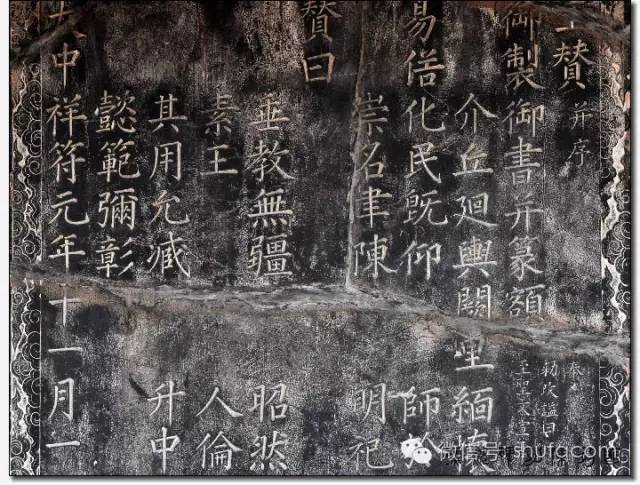 贊并序
奉
勑改謚曰
至聖文宣
御製御書并篆額
介丘廻輿闕里緬懷
易俗化民既仰 師於
崇名聿陳 明祀
贊曰
垂教無疆 昭然
素王 人倫
其用允臧 升中
懿範彌彰
大中祥符元年十一月一
微信号: shufacom